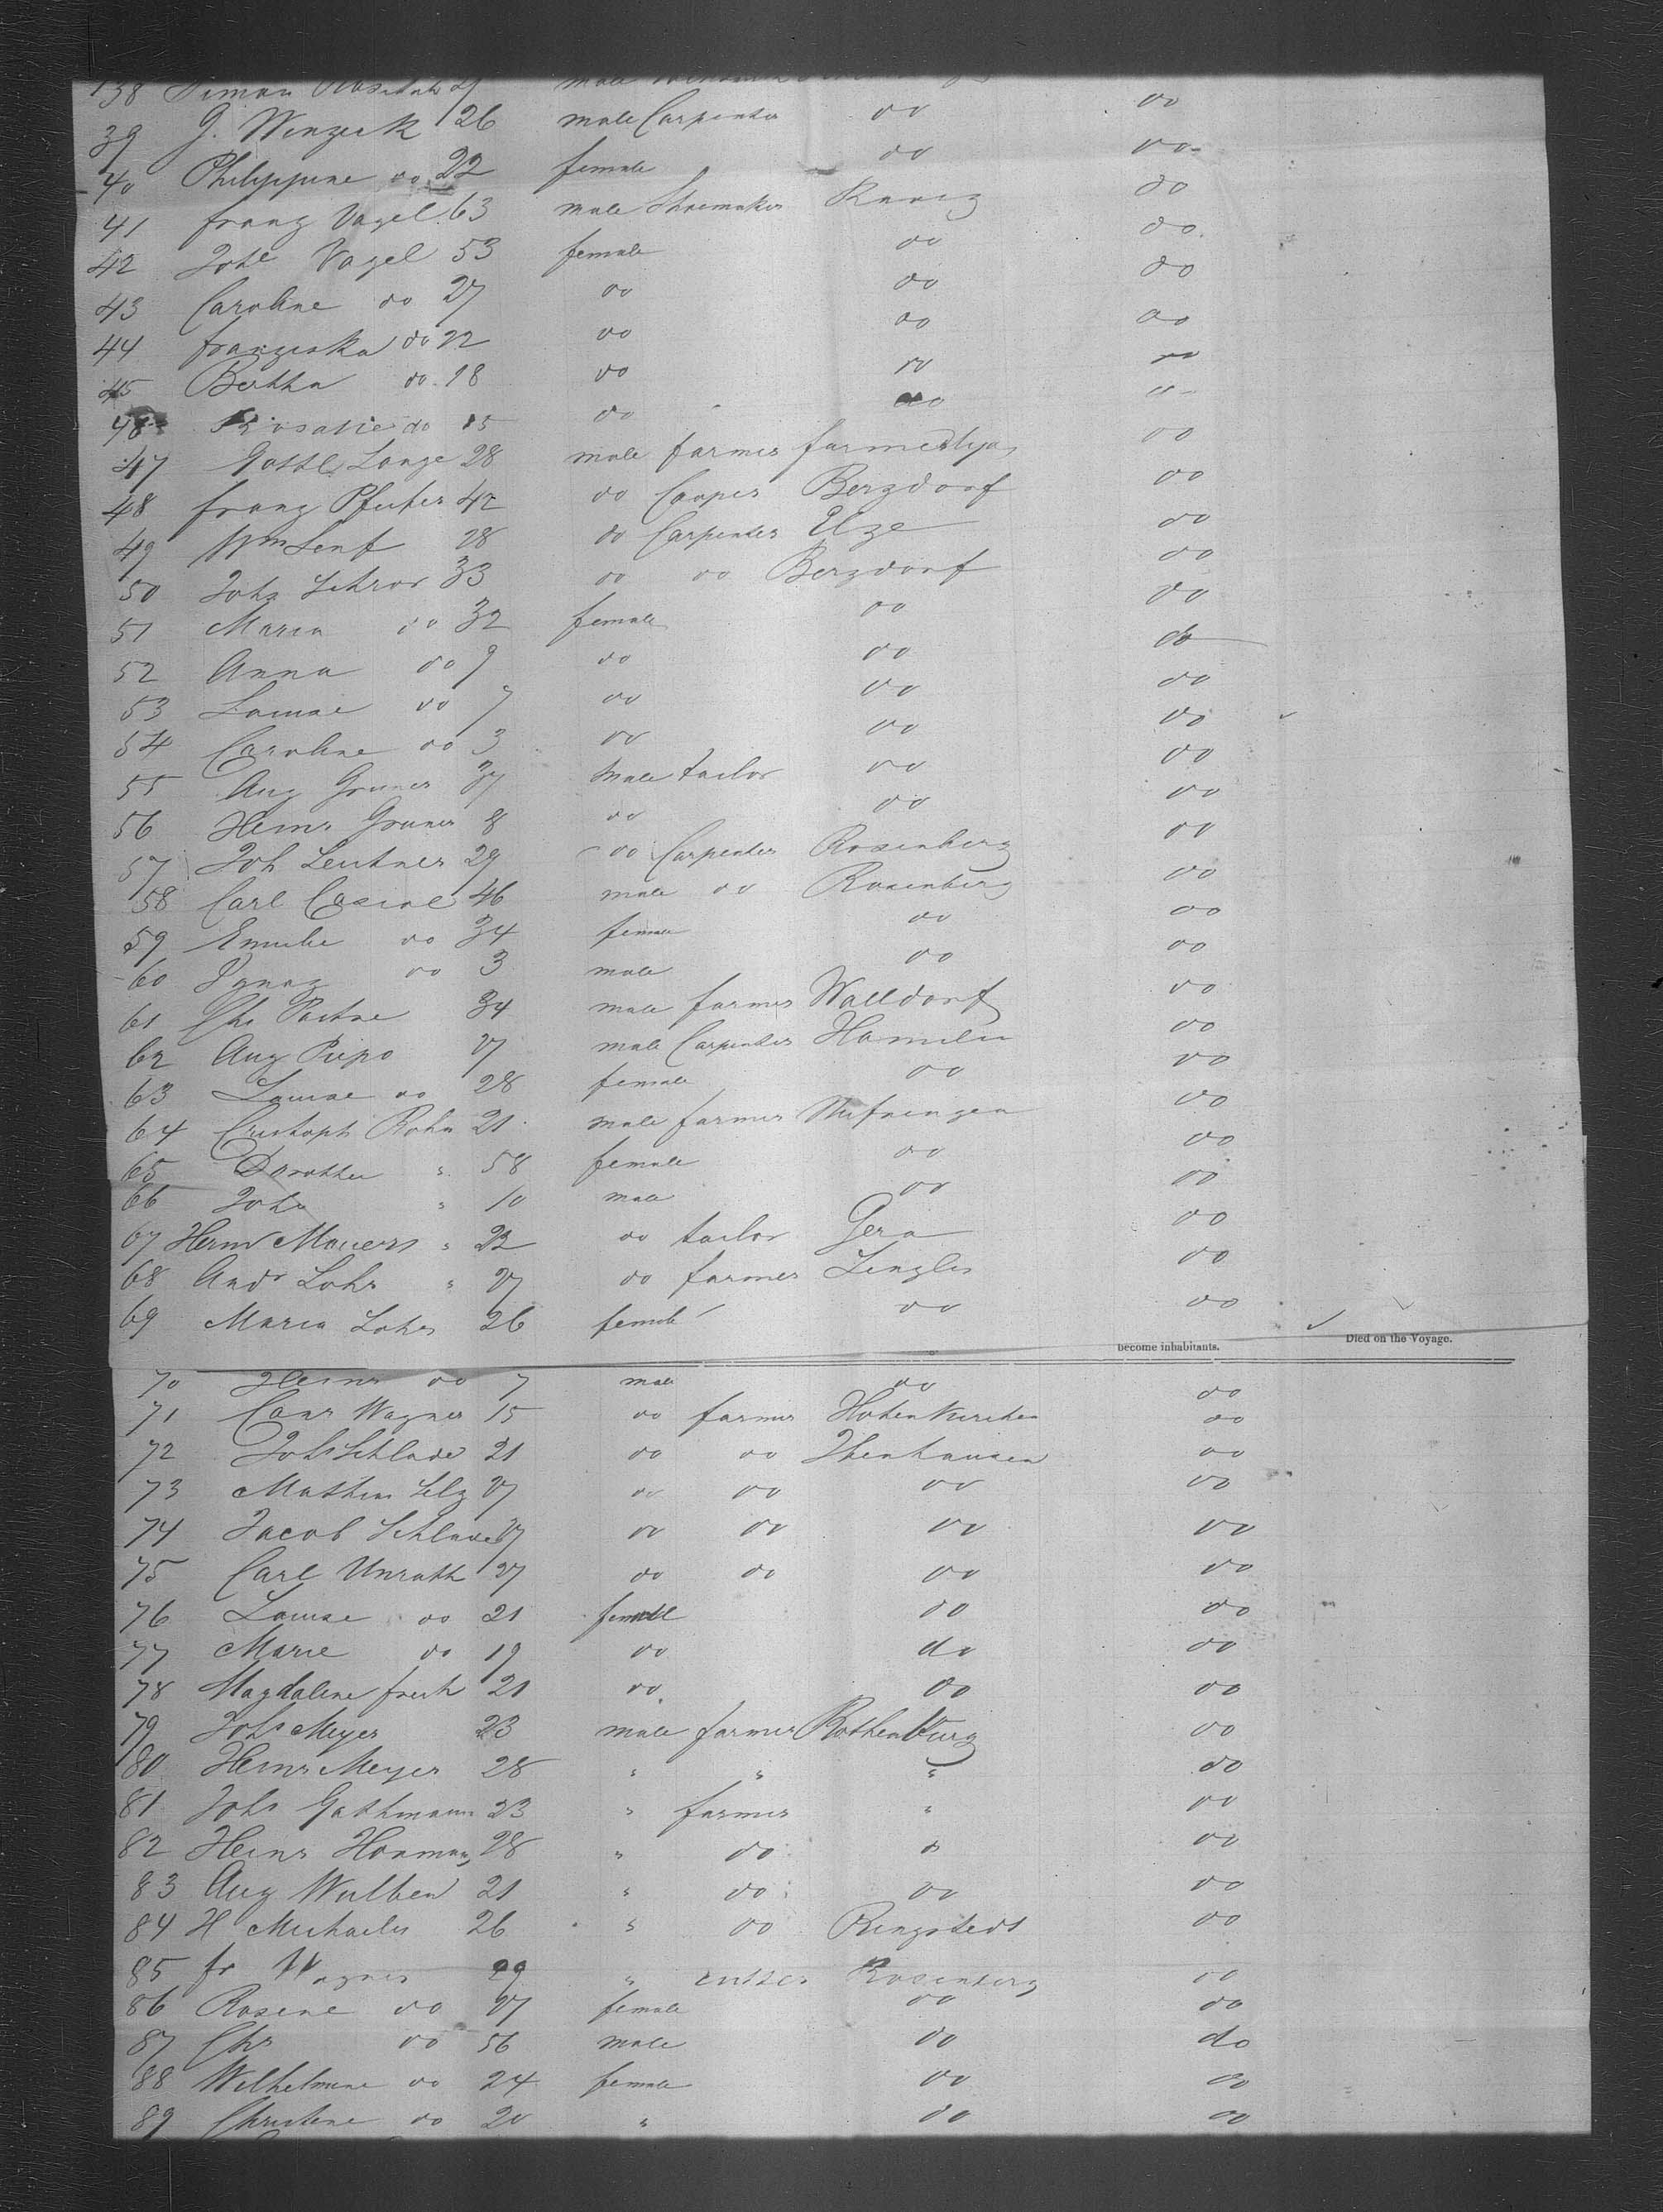 138 Simon 29 male
39 G. Winzeck 26 male Carpenter do do
40 Philippine do 22 female do do
41 Franz Vogel 63 male Shoemaker do
42 Johe Vogel 53 female do do
43 Caroline do 27 do do do
44 Franziska do 22 do do do
45 Bertha do 18 do do do
46 Rosalie do 15 do do "
47 Gottl. Lange 28 male farmer do
48 Franz Pfeifer 42 do Cooper Bergdorf do
49 Wm Senf 28 do Carpenter Elze do
50 Johs Schror 33 do do Bergdorf do
51 Maria do 32 female do do
52 Anna do 9 do do do
53 Louise do 7 do do do
54 Caroline do 3 do do do
55 Aug Gruner 37 male tailor do do
56 Heinr Gruner 8 do do do
57 Joh Leutner 29 do Carpenter Rosenberg do
58 Carl 46 male do Rosenberg do
59 Emilie do 34 female do do
60 Ignaz do 3 male do do
61 Chr 34 male farmer Walldorf do
62 Aug Piepo 27 male Carpenter Hameln do
63 Louise do 28 female do do
64 Cristoph Rohn 21 male farmer do
65 Dorothea " 58 female do do
66 Johs " 10 male do do
67 Herm Mauers " 22 do tailor Gera do
68 Andr Lohr " 27 do farmer Lengler do
69 Maria Lohr 26 female do do
become inhabitants. Died on the Voyage.
70 Heinr do 7 male do do
71 Conr Wagner 15 do farmer Hohenkirchen do
72 Johs Schlade 21 do do Ihenhausen do
73 Mathias Selz 27 do do do do
74 Jacob Schlade 27 do do do do
75 Carl Unrath 27 do do do do
76 Louise do 21 female do do
77 Marie do 19 do do do
78 Magdalene Frech 21 do do do
79 Johs Meyer 23 male farmer Rothenburg do
80 Heinr Meyer 28 " " " do
81 Johs Gathmann 23 " farmer " do
82 Heinr Honmann 28 " do " do
83 Aug Wulben 21 " do do do
84 H Michaelis 26 " do Ringstedt do
85 Fr Wagner 29 " cutler Rosenberg do
86 Rosine do 27 female do do
87 Chr do 56 male do do
88 Wilhelmine do 24 female do do
89 Christine do 20 " do do